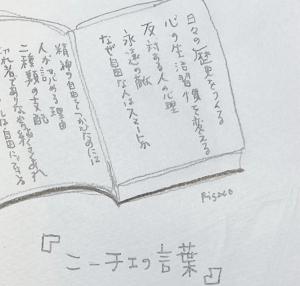 日々の歴史をつくる
心の生活習慣を変える
反対する人の心理
永遠の敵
なぜ自由な人はスマートか
精神の自由をつかむためには
人が認める理由
二種類の支配
自由に
Risaco
『ニーチェの言葉』